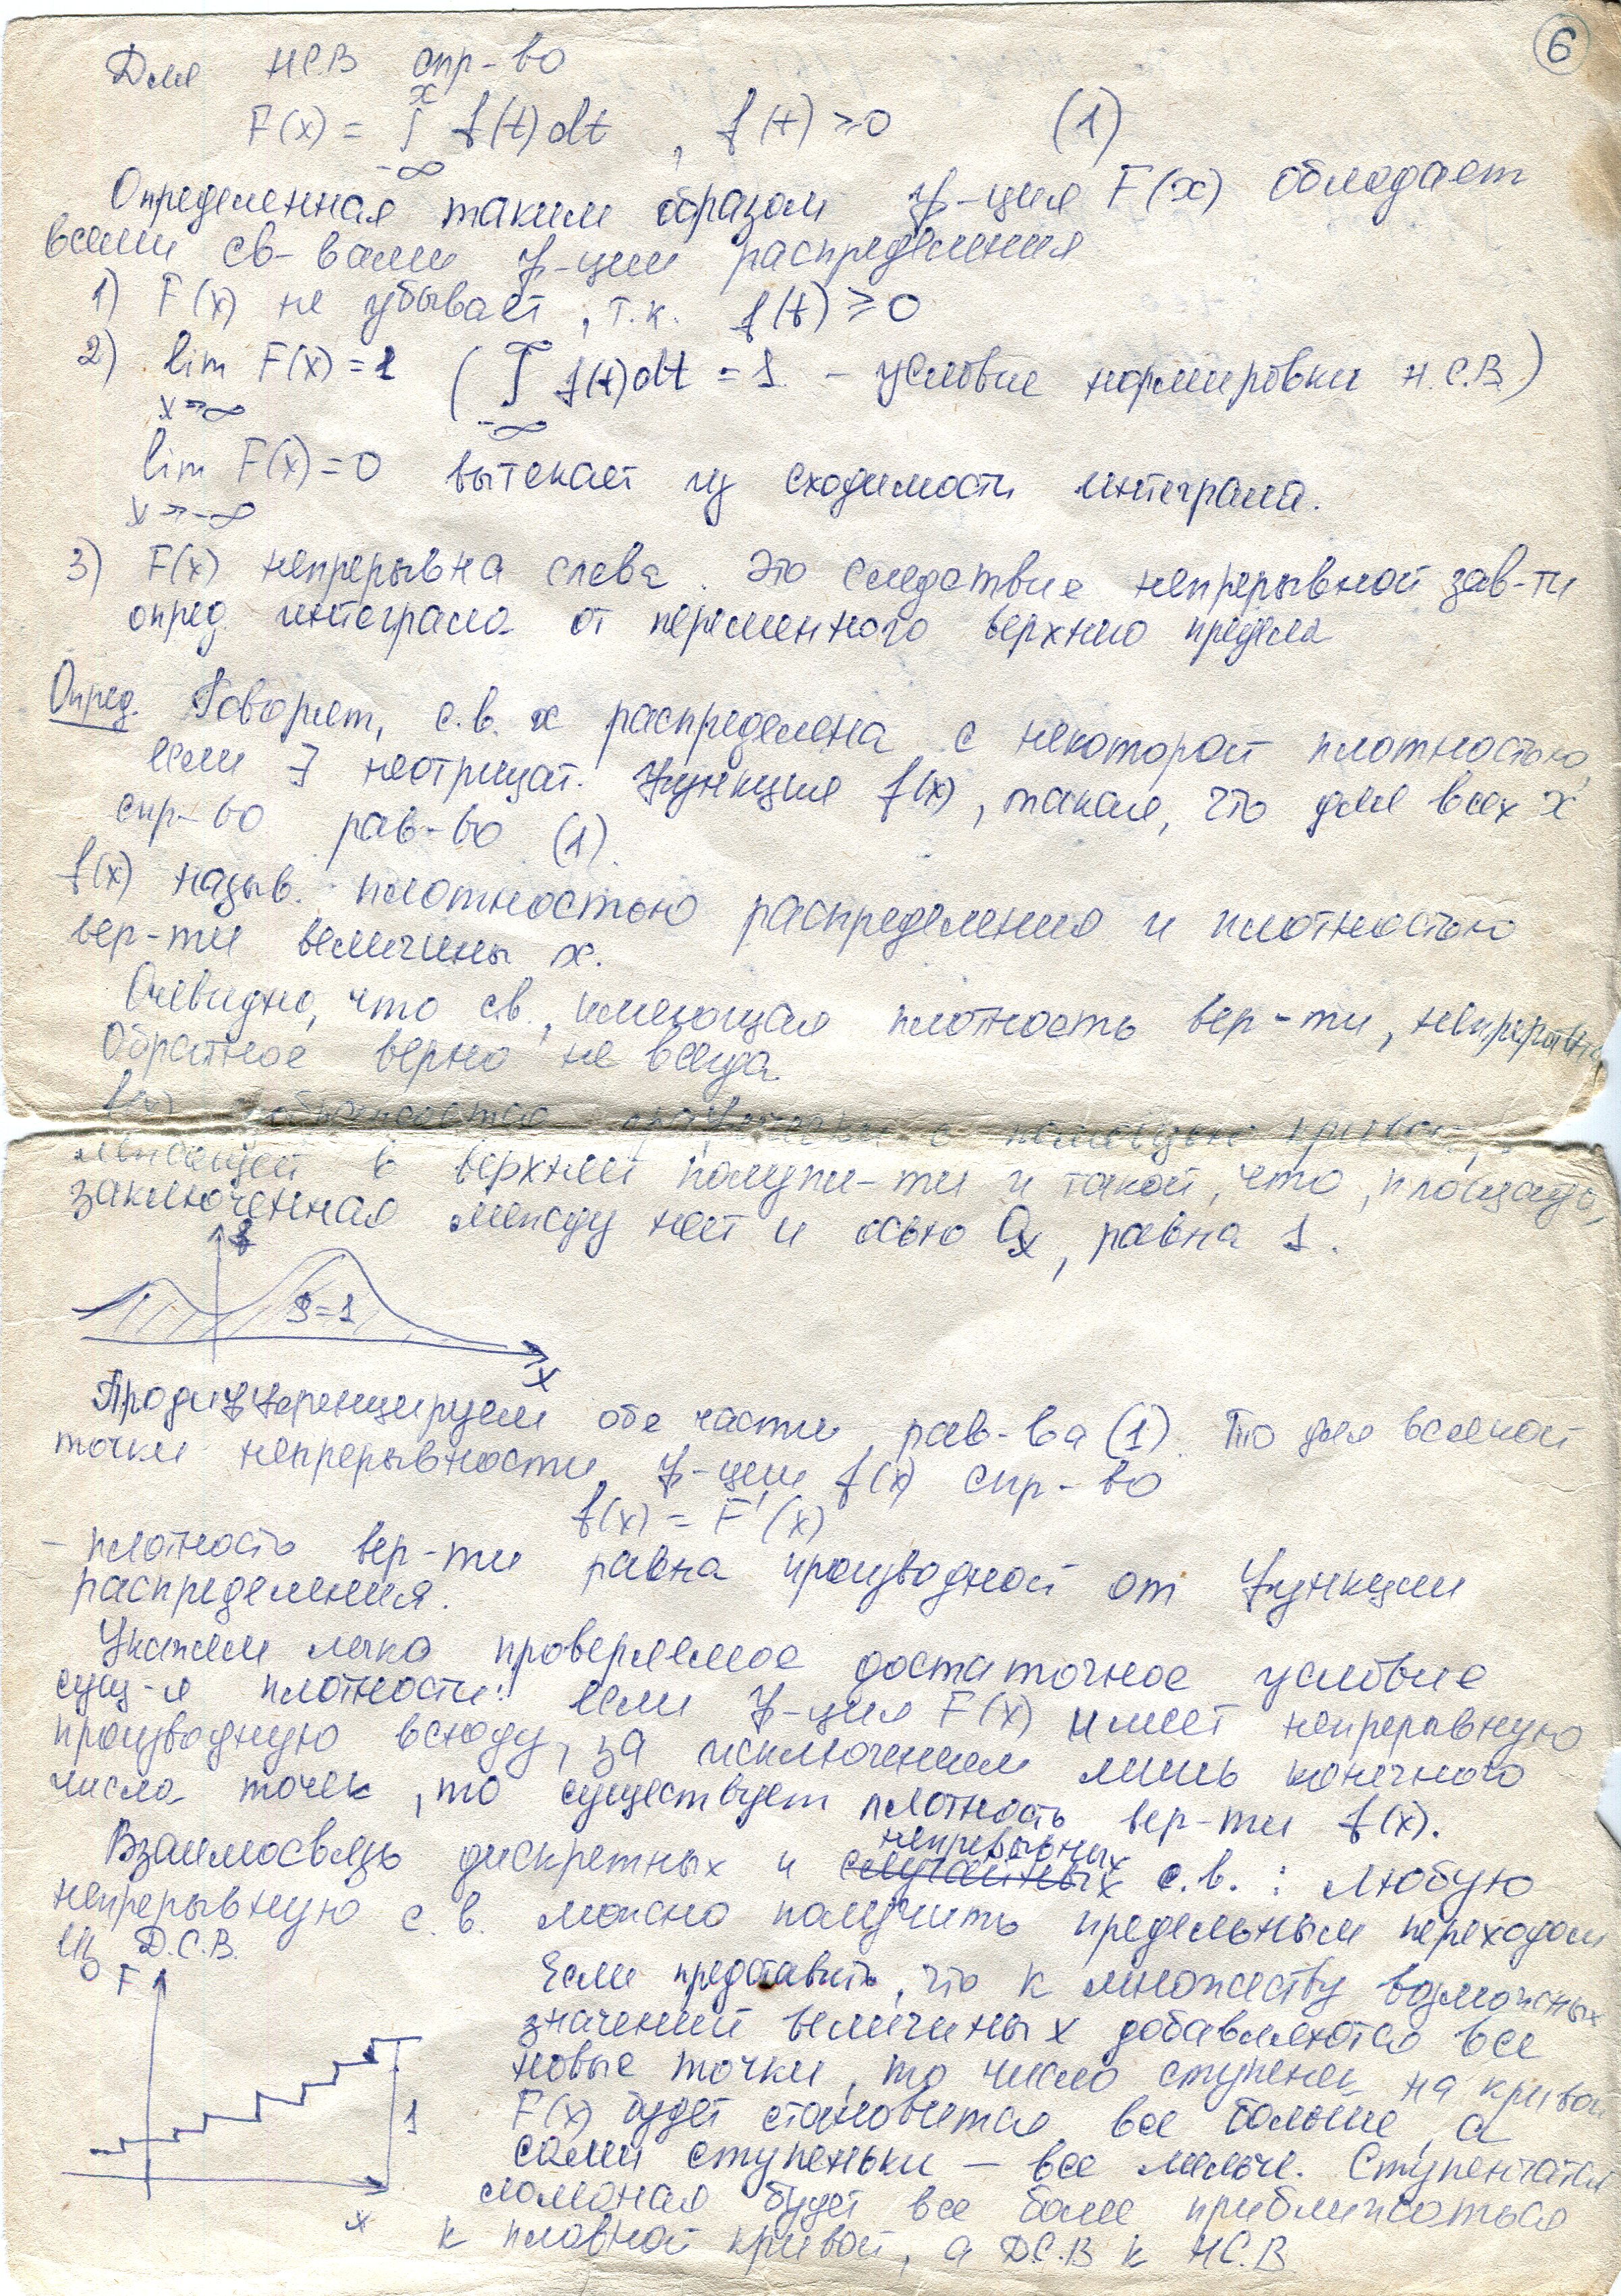 6
Для НСВ спр-во
F(x) = ∫_{-∞}^{x} f(t)dt , f(t) ≥ 0 (1)
Определенная таким образом ф-ция F(x) обладает
всеми св-вами ф-ции распределения
1) F(x) не убывает, т.к. f(t) ≥ 0
2) lim F(x) = 1 ( ∫_{-∞}^{∞} f(t)dt = 1 - условие нормировки Н.С.В.)
x→∞
lim F(x) = 0 вытекает из сходимости интеграла.
x→-∞
3) F(x) непрерывна слева. Это следствие непрерывной зав-ти
опред. интеграла от переменного верхнего предела
Опред. Говорят, с.в. x распределена с некоторой плотностью,
если ∃ неотрицат. функция f(x), такая, что для всех x
спр-во рав-во (1).
f(x) назыв. плотностью распределения и плотностью
вер-ти величины x.
Очевидно, что с.в., имеющая плотность вер-ти, непрерывна
Обратное верно не всегда.
с помощью кривой,
лежащей в верхней полупл-ти и такой, что, площадь,
заключенная между ней и осью Ox, равна 1.
f
S=1
x
Продифференцируем обе части рав-ва (1). То для всякой
точки непрерывности ф-ции f(x) спр-во
f(x) = F'(x)
- плотность вер-ти равна производной от функции
распределения.
Укажем легко проверяемое достаточное условие
сущ-я плотности: если ф-ция F(x) имеет непрерывную
производную всюду, за исключением лишь конечного
числа точек, то существует плотность вер-ти f(x).
непрерывных
Взаимосвязь дискретных и случайных с.в. : любую
непрерывную с.в. можно получить предельным переходом
из Д.С.В.
F
1
x
Если представить, что к множеству возможных
значений величины x добавляются все
новые точки, то число ступенек на кривой
F(x) будет становится все больше, а
сами ступеньки - все мельче. Ступенчатая
ломаная будет все более приближаться
к плавной кривой, а Д.С.В к Н.С.В.